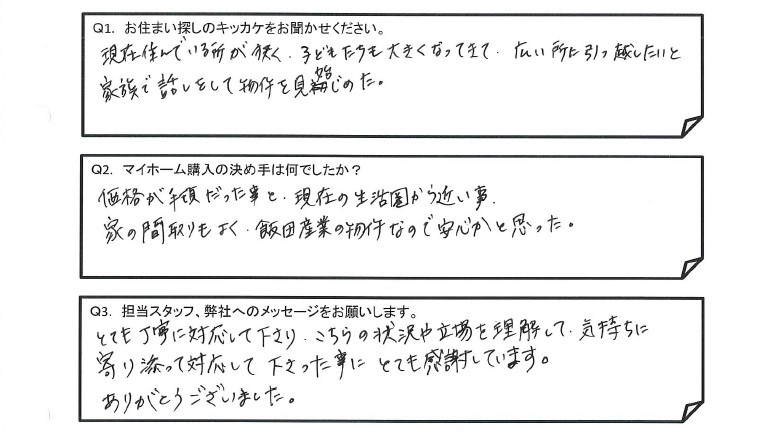 Q1. お住まい探しのキッカケをお聞かせください。
現在住んでいる所が狭く、子どもたちも大きくなってきて、広い所に引っ越したいと
家族で話しをして物件を見始めた。
Q2. マイホーム購入の決め手は何でしたか？
価格が手頃だった事と、現在の生活圏から近い事、
家の間取りもよく、飯田産業の物件なので安心かと思った。
Q3. 担当スタッフ、弊社へのメッセージをお願いします。
とても丁寧に対応して下さり、こちらの状況や立場を理解して、気持ちに
寄り添って対応して下さった事にとても感謝しています。
ありがとうございました。